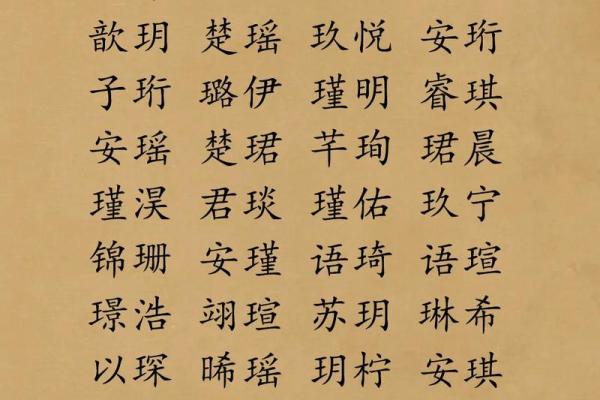 歆玥 楚瑶 玖悦 安珩
子珩 璐伊 瑾明 睿琪
安瑶 楚珺 芊珣 珺晨
瑾淏 君琰 瑾佑 玖宁
锦珊 安瑾 语琦 语瑄
璟浩 翊瑄 苏玥 琳希
以琛 晞瑶 玥柠 安琪